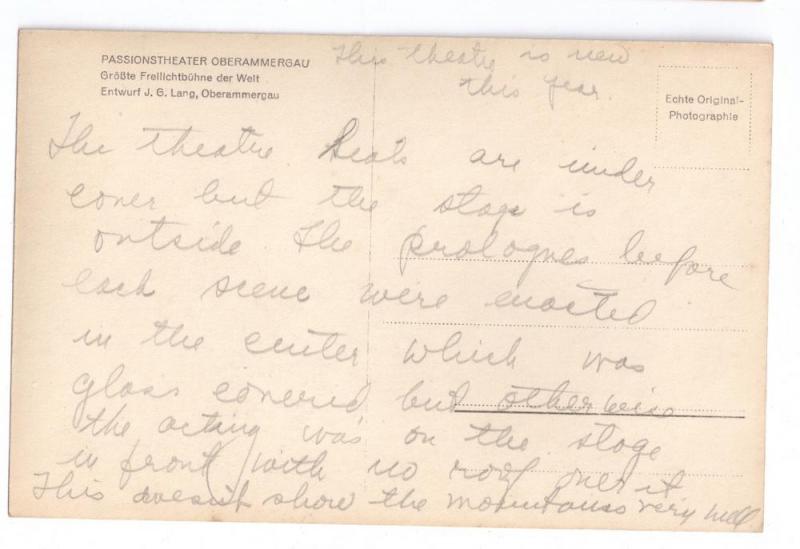 PASSIONSTHEATER OBERAMMERGAU
Größte Freilichtbühne der Welt
Entwurf J. G. Lang, Oberammergau
This theatre is new
this year.
Echte Original-
Photographie
The theatre seats are under
cover but the stage is
outside The prologues before
each scene were enacted
in the center which was
glass covered but otherwise
the acting was on the stage
in front with no roof over it
This doesn't show the mountains very well